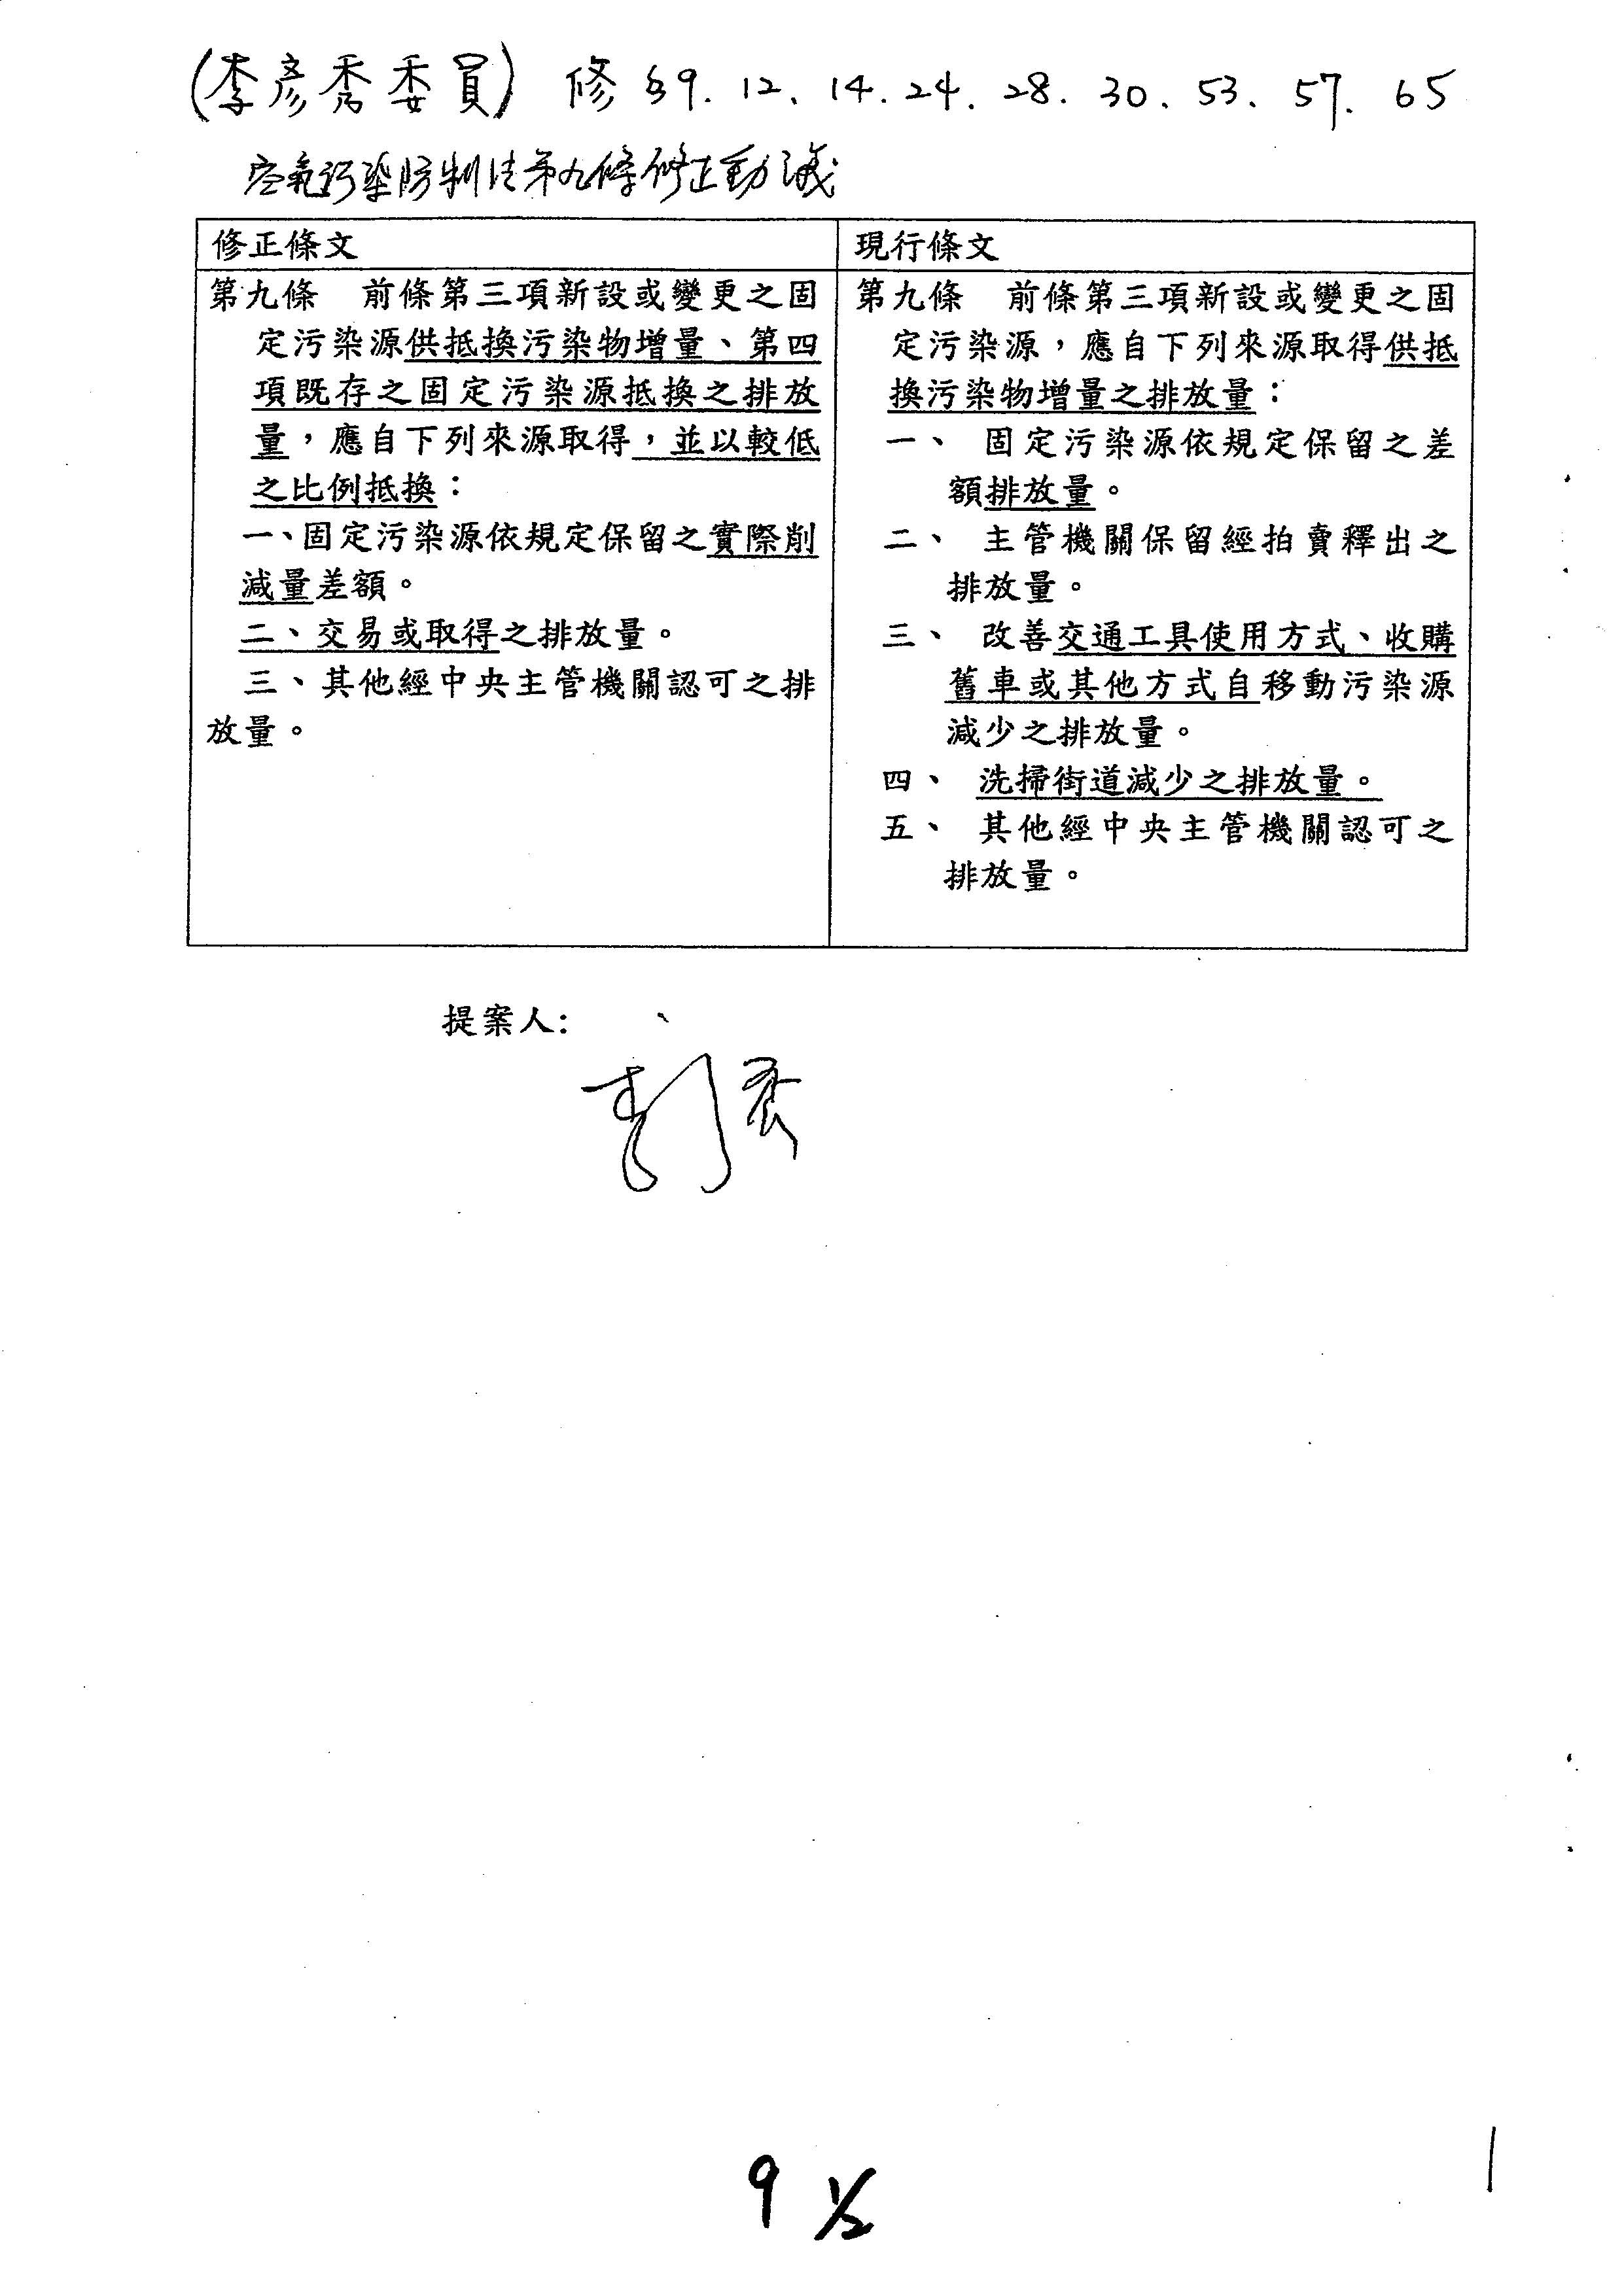 (李彥秀委員) 修 §9. 12、14. 24. 28. 30. 53. 57. 65
空氣污染防制法第九條修正動議
修正條文
第九條 前條第三項新設或變更之固
定污染源供抵換污染物增量、第四
項既存之固定污染源抵換之排放
量，應自下列來源取得，並以較低
之比例抵換：
一、固定污染源依規定保留之實際削
減量差額。
二、交易或取得之排放量。
三、其他經中央主管機關認可之排
放量。
現行條文
第九條 前條第三項新設或變更之固
定污染源，應自下列來源取得供抵
換污染物增量之排放量：
一、 固定污染源依規定保留之差
額排放量。
二、 主管機關保留經拍賣釋出之
排放量。
三、 改善交通工具使用方式、收購
舊車或其他方式自移動污染源
減少之排放量。
四、 洗掃街道減少之排放量。
五、 其他經中央主管機關認可之
排放量。
提案人：
9 1/2
1